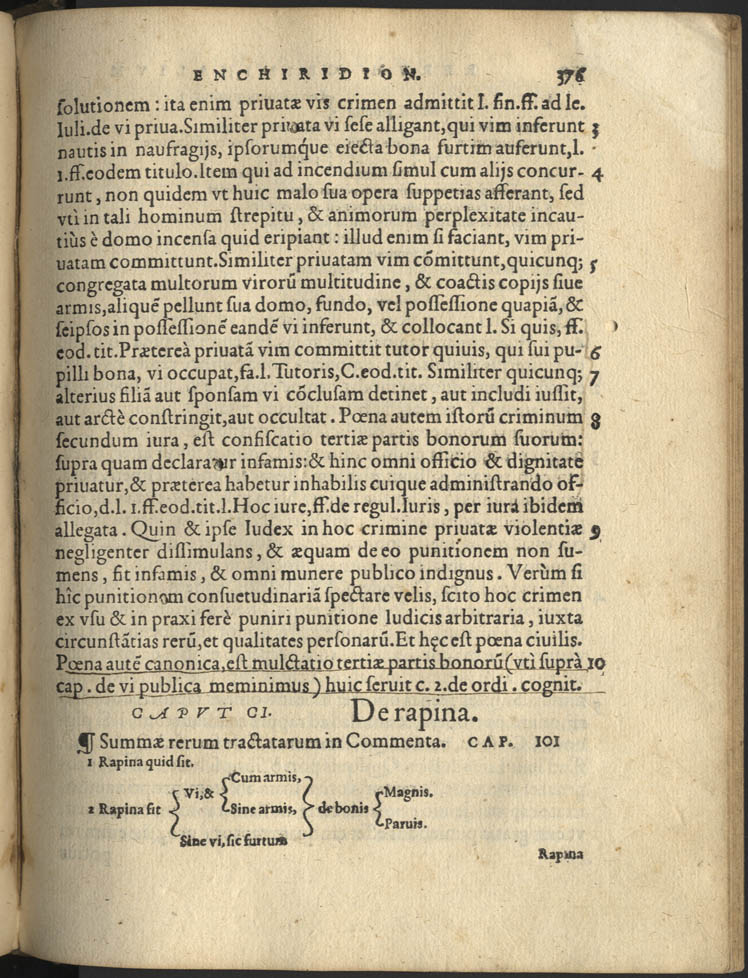 ENCHIRIDION. 376
ſolutionem : ita enim priuatæ vis crimen admittit l. fin.ff. ad le.
Iuli.de vi priua.Similiter priuata vi ſeſe alligant,qui vim inferunt 3
nautis in naufragijs, ipſorumq́ue eiecta bona furtim auferunt,l.
1.ff.eodem titulo.Item qui ad incendium ſimul cum alijs concur- 4
runt, non quidem vt huic malo ſua opera ſuppetias afferant, ſed
vtì in tali hominum ſtrepitu, & animorum perplexitate incau-
tiùs è domo incenſa quid eripiant : illud enim ſi faciant, vim pri-
uatam committunt.Similiter priuatam vim cōmittunt,quicunq; 5
congregata multorum virorū multitudine, & coactis copijs ſiue
armis,aliquē pellunt ſua domo, fundo, vel poſſeſſione quapiā, &
ſeipſos in poſſeſſionē eandē vi inferunt, & collocant l. Si quis, ff.
eod. tit.Prætereà priuatā vim committit tutor quiuis, qui ſui pu- 6
pilli bona, vi occupat,fa.l. Tutoris, C.eod.tit. Similiter quicunq; 7
alterius filiā aut ſponſam vi cōcluſam detinet, aut includi iuſſit,
aut arctè conſtringit,aut occultat. Pœna autem iſtorū criminum 8
ſecundum iura, eſt confiſcatio tertiæ partis bonorum ſuorum:
ſupra quam declaratur infamis:& hinc omni officio & dignitate
priuatur,& præterea habetur inhabilis cuique adminiſtrando of-
ficio,d.l. 1.ff.eod.tit.l.Hoc iure,ff.de regul.Iuris, per iura ibidem
allegata. Quin & ipſe Iudex in hoc crimine priuatæ violentiæ 9
negligenter diſſimulans, & æquam de eo punitionem non ſu-
mens, fit infamis, & omni munere publico indignus. Verùm ſi
hîc punitionem conſuetudinariā ſpectare velis, ſcito hoc crimen
ex vſu & in praxi ferè puniri punitione Iudicis arbitraria, iuxta
circunſtātias rerū,et qualitates perſonarū.Et hęc eſt pœna ciuilis.
Pœna autē canonica,eſt mulctatio tertiæ partis bonorū(vti ſuprà 10
cap. de vi publica meminimus) huic ſeruit c. 2.de ordi. cognit.
CAPVT CI. De rapina.
¶ Summæ rerum tractatarum in Commenta. CAP. 101
1 Rapina quid ſit.
2 Rapina fit { Vi,& { Cum armis, Sine armis, } de bonis { Magnis. Paruis.
Sine vi, ſic furtum
Rapina